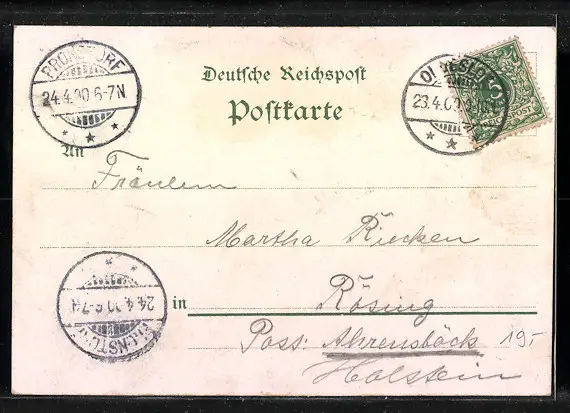 PRONSTORF
24.4.00 6-7N
Deutsche Reichspost
Postkarte
OLDESLOE
23.4.00
5
REICHSPOST
An
Fräulein
Martha Riecken
24.4.00 6-7N
in Rösing
Post: Ahrensböck 19.-
Holstein